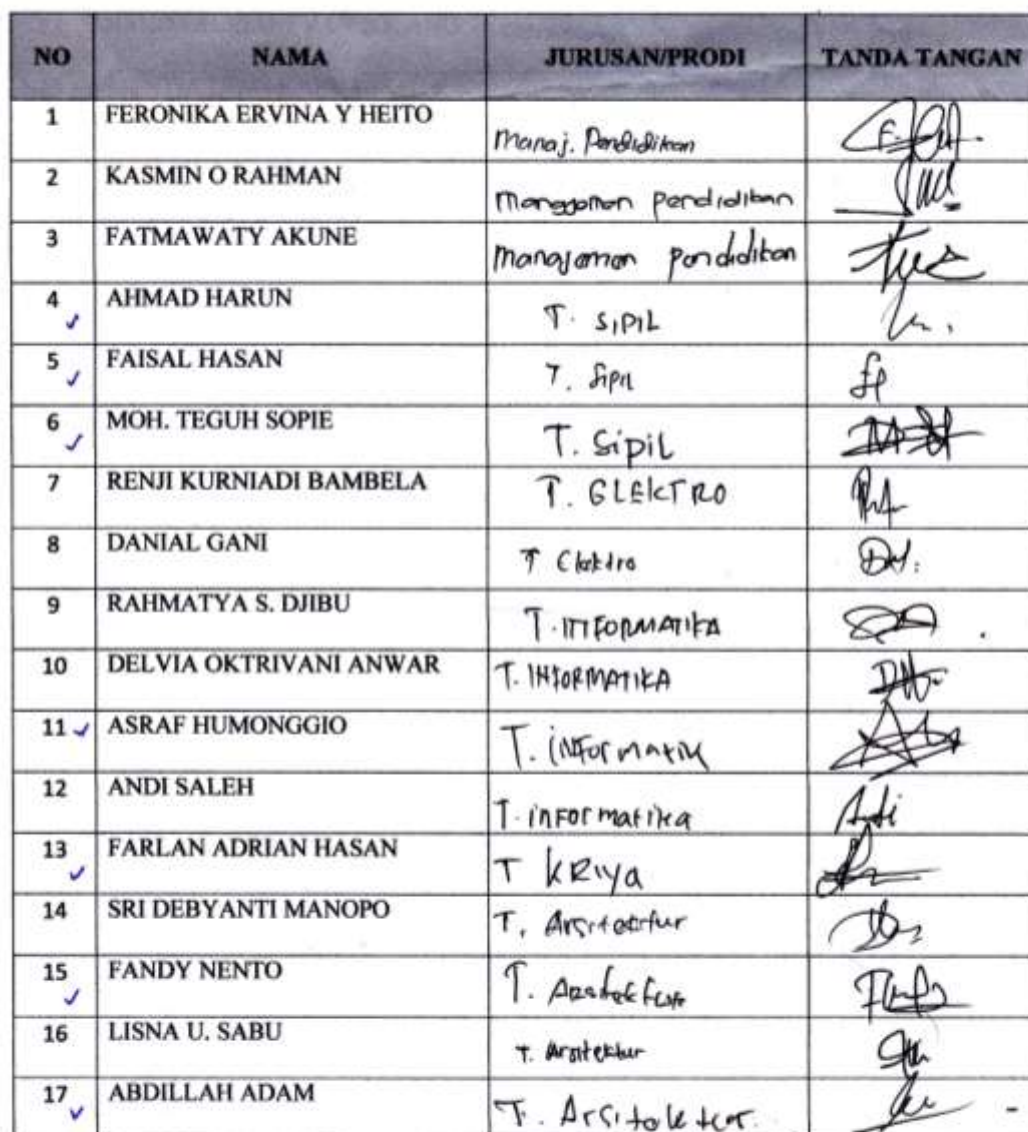 NO NAMA JURUSAN/PRODI TANDA TANGAN
1 FERONIKA ERVINA Y HEITO Manaj. Pendidikan
2 KASMIN O RAHMAN Manggomen pendidikan
3 FATMAWATY AKUNE Manajemen pendidikan
4 AHMAD HARUN T. SIPIL
5 FAISAL HASAN T. Sipil
6 MOH. TEGUH SOPIE T. Sipil
7 RENJI KURNIADI BAMBELA T. ELEKTRO
8 DANIAL GANI T Elektro
9 RAHMATYA S. DJIBU T. INFORMATIKA
10 DELVIA OKTRIVANI ANWAR T. INFORMATIKA
11 ASRAF HUMONGGIO T. informatik
12 ANDI SALEH T. informatika Andi
13 FARLAN ADRIAN HASAN T KRIya
14 SRI DEBYANTI MANOPO T. Arsitektur
15 FANDY NENTO T. Arsitektur
16 LISNA U. SABU T. Arsitektur
17 ABDILLAH ADAM T. Arsitektur.